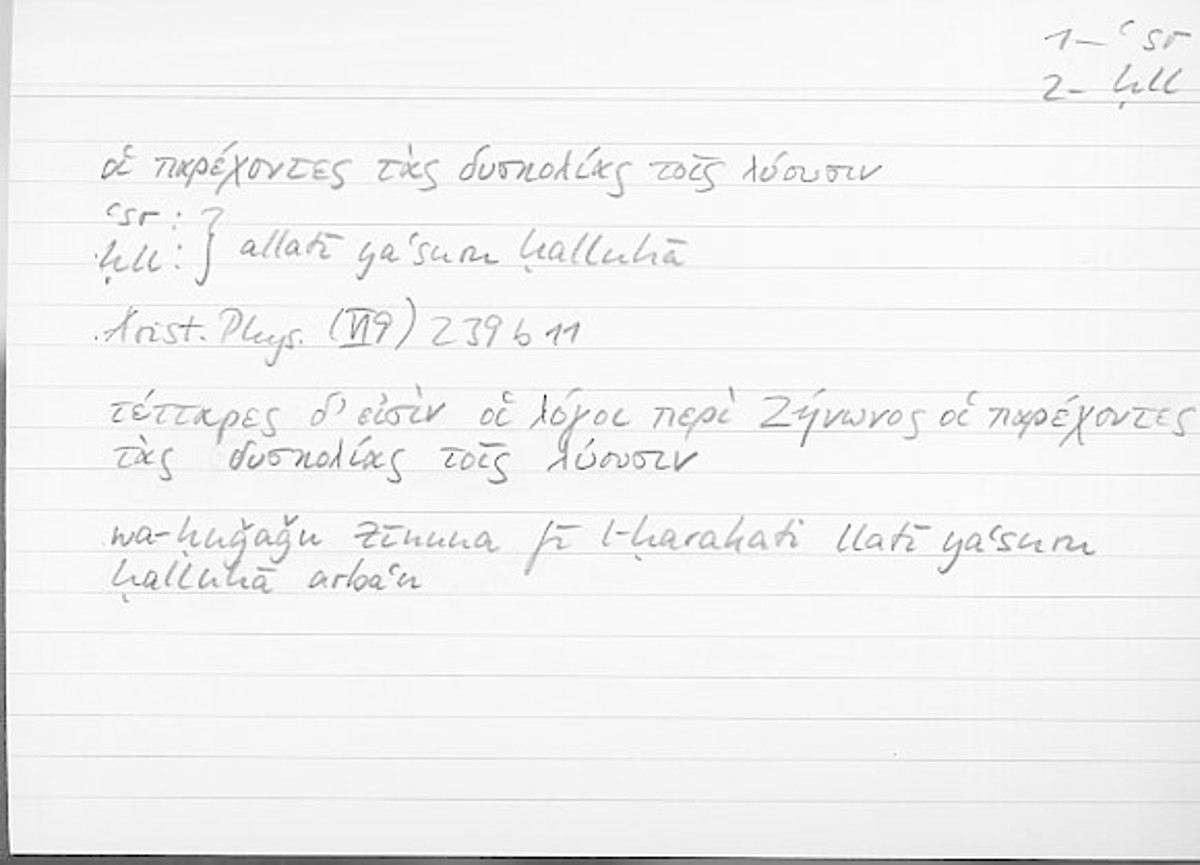 1- ʿsr
2- ḥll
οἱ παρέχοντες τὰς δυσκολίας τοῖς λύουσιν
ʿsr : }
ḥll : } allatī yaʿsuru ḥalluhā
Arist. Phys. (VI 9) 239 b 11
τέτταρες δ' εἰσὶν οἱ λόγοι περὶ Ζήνωνος οἱ παρέχοντες
τὰς δυσκολίας τοῖς λύουσιν
wa-ḥuǧaǧu Zīnuna fī l-ḥarakati llatī yaʿsuru
ḥalluhā arbaʿu